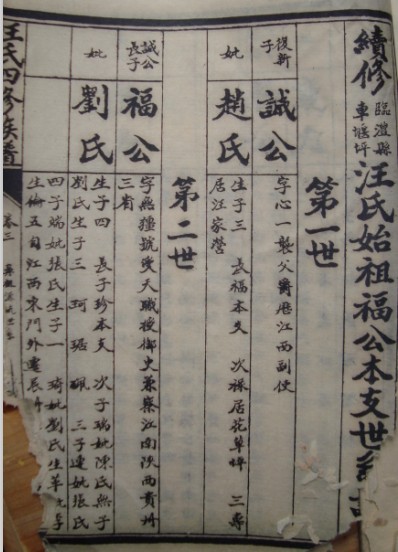 續修臨澧縣車堰坪汪氏始祖福公本支世系
第一世
復新子 誠公
字心一襲父爵歷江西副使
妣 趙氏
生子三 長福本支 次祿居花草坪 三壽
居汪家營
第二世
誠公長子 福公
字 號 天職授御史兼察江南陝西貴州
三省
妣 劉氏
生子四 長子珍本支 次子瑞妣陳氏無子
劉氏生子三 珂 琚 珮 三子 妣張氏
四子瑞妣張氏生子一 琦妣劉氏生
生倫五自江西 門外遷
汪氏四修族譜
卷三